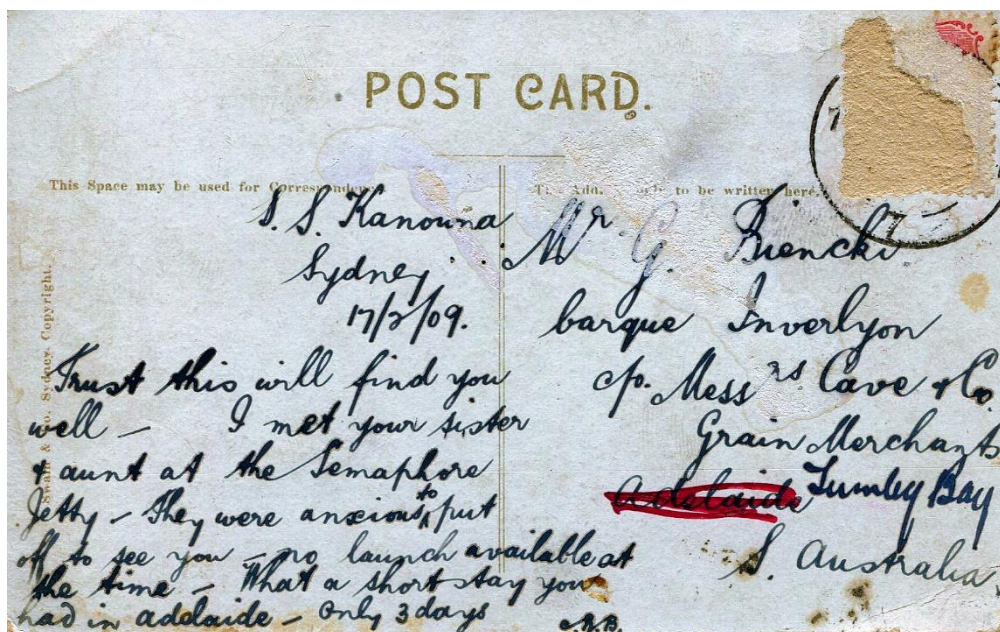 POST CARD.
This Space may be used for Correspondence
S. S. Kanowna
Sydney
17/2/09.
Trust this will find you
well – I met your sister
& aunt at the Semaphore
Jetty – They were anxious to put
off to see you – no launch available at
the time – What a short stay you
had in adelaide – only 3 days
Swain & Co. Sydney. Copyright.
The Add. to be written here.
Mr. G. Biencki
barque Inverlyon
c/o. Messrs Cave & Co.
Grain Merchants
Adelaide Tumby Bay
S. Australia
7
7